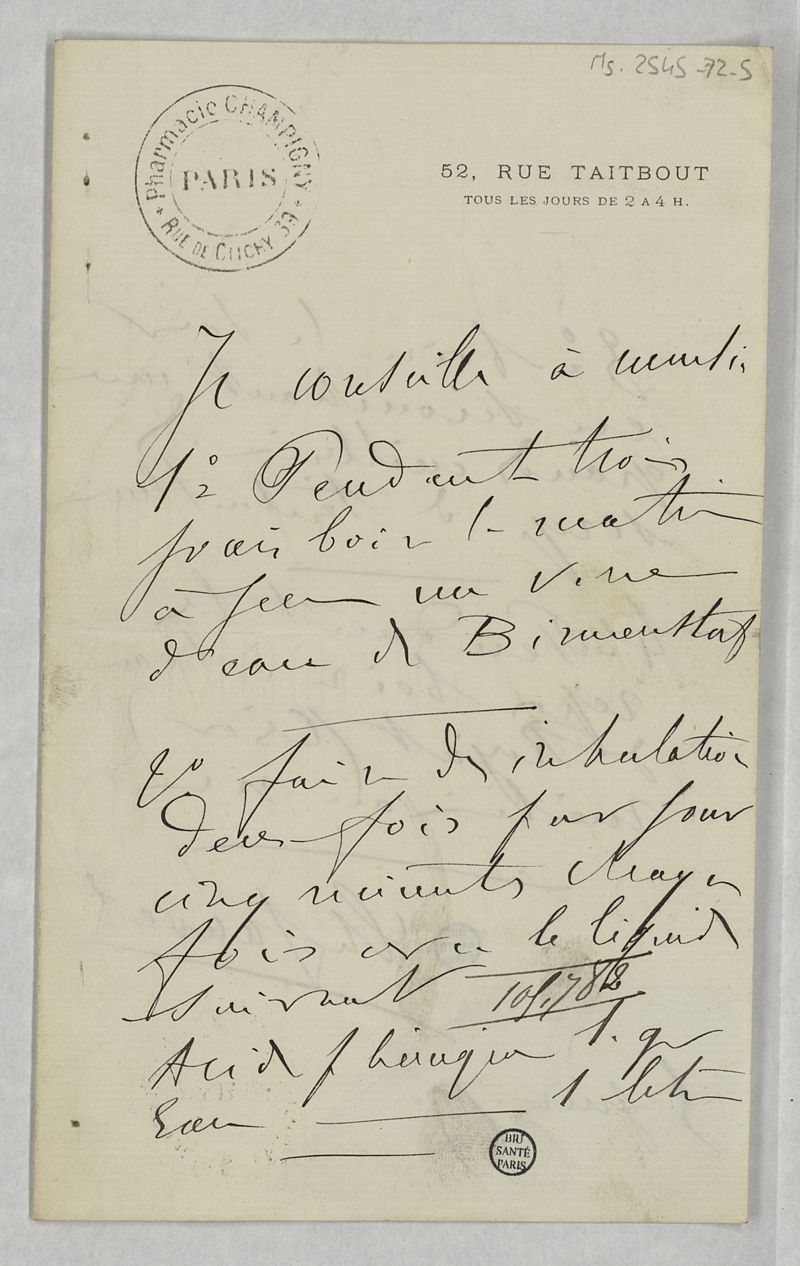 Ms. 2545-72-5
Pharmacie CHAMPIGNY
PARIS
* RUE DE CLICHY 39 *
52, RUE TAITBOUT
TOUS LES JOURS DE 2 A 4 H.
Je conseille à
1° Pendant trois
jours boire le matin
à jeun un verre
d'eau de Birmenstorf
2° faire des inhalations
deux fois par jour
cinq minutes chaque
fois avec le liquide
suivant 101,782
Acide phénique 1. gr
Eau 1 litre
BIU
SANTÉ
PARIS